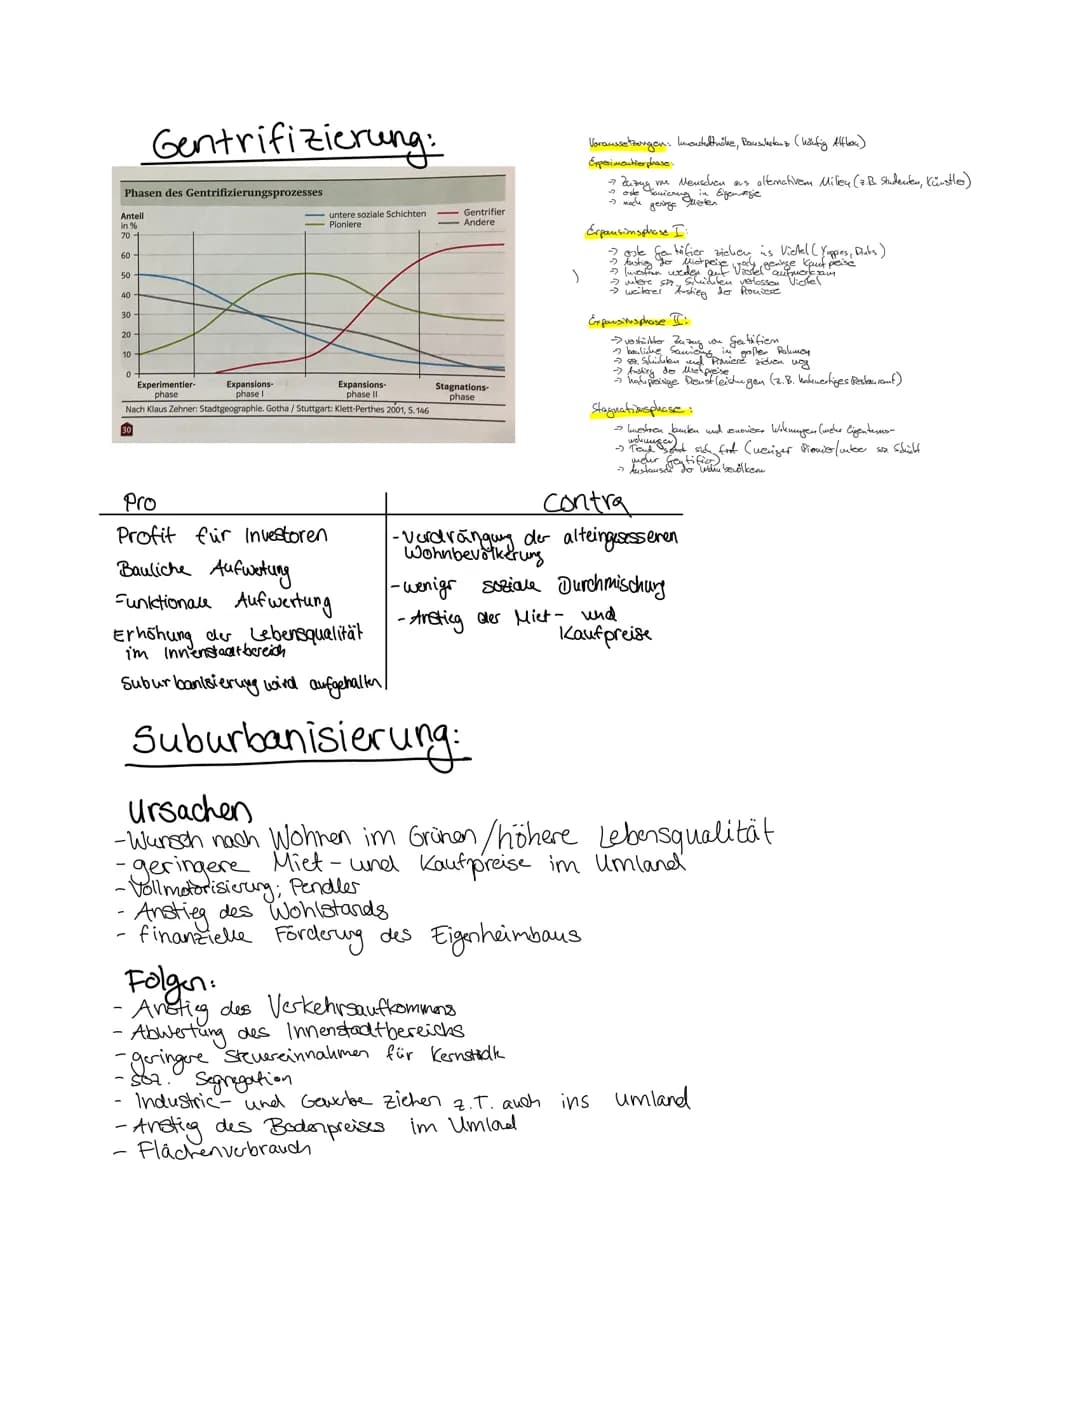 Gentrifizierung:
Phasen des Gentrifizierungsprozesses
Anteil
in %
70
60
50
40
30
20
10
0
untere soziale Schichten
Pioniere
Gentrifier
Andere
Experimentier-
phase
Expansions-
phase I
Expansions-
phase II
Stagnations-
phase
Nach Klaus Zehner: Stadtgeographie. Gotha / Stuttgart: Klett-Perthes 2001, S. 146
30
Voraussetzungen: Innenstadtnähe, Bausubstanz (häufig Altbau)
Experimentierphase:
→ Zuzug von Menschen aus alternativem Milieu (z.B. Studenten, Künstler)
→ erste Sanierung in Eigenregie
→ noch geringe Mieten
Expansionsphase I:
→ erste Gentrifier ziehen ins Viertel (Yuppies, Dinks)
→ Anstieg der Mietpreise, noch geringe Kaufpreise
→ Investoren werden auf Viertel aufmerksam
→ untere soz. Schichten verlassen Viertel
→ weiterer Anstieg der Pioniere
Expansionsphase II:
→ verstärkter Zuzug von Gentrifiern
→ bauliche Sanierung in großem Rahmen
→ soz. Schichten und Pioniere ziehen weg
→ Anstieg der Mietpreise
→ hochpreisige Dienstleistungen (z.B. hochwertiges Restaurant)
Stagnationsphase:
→ Investoren kaufen und renovieren Wohnungen (mehr Eigentums-
wohnungen)
→ Trend setzt sich fort (weniger Pionier/untere soz Schicht
mehr Gentrifier)
→ Austausch der Wohnbevölkerung
Pro
Contra
Profit für Investoren
Bauliche Aufwertung
Funktionale Aufwertung
Erhöhung der Lebensqualität
im Innenstadtbereich
Suburbanisierung wird aufgehalten
-Verdrängung der alteingesessenen
Wohnbevölkerung
-weniger soziale Durchmischung
-Anstieg der Miet- und
Kaufpreise
Suburbanisierung:
Ursachen
-Wunsch nach Wohnen im Grünen/höhere Lebensqualität
-geringere Miet- und Kaufpreise im Umland
-Vollmotorisierung; Pendler
- Anstieg des Wohlstands
- finanzielle Förderung des Eigenheimbaus
Folgen:
- Anstieg des Verkehrsaufkommens
- Abwertung des Innenstadtbereichs
-geringere Steuereinnahmen für Kernstadt
-soz. Segregation
- Industrie- und Gewerbe ziehen z.T. auch ins Umland
-Anstieg des Bodenpreises im Umland
- Flächenverbrauch